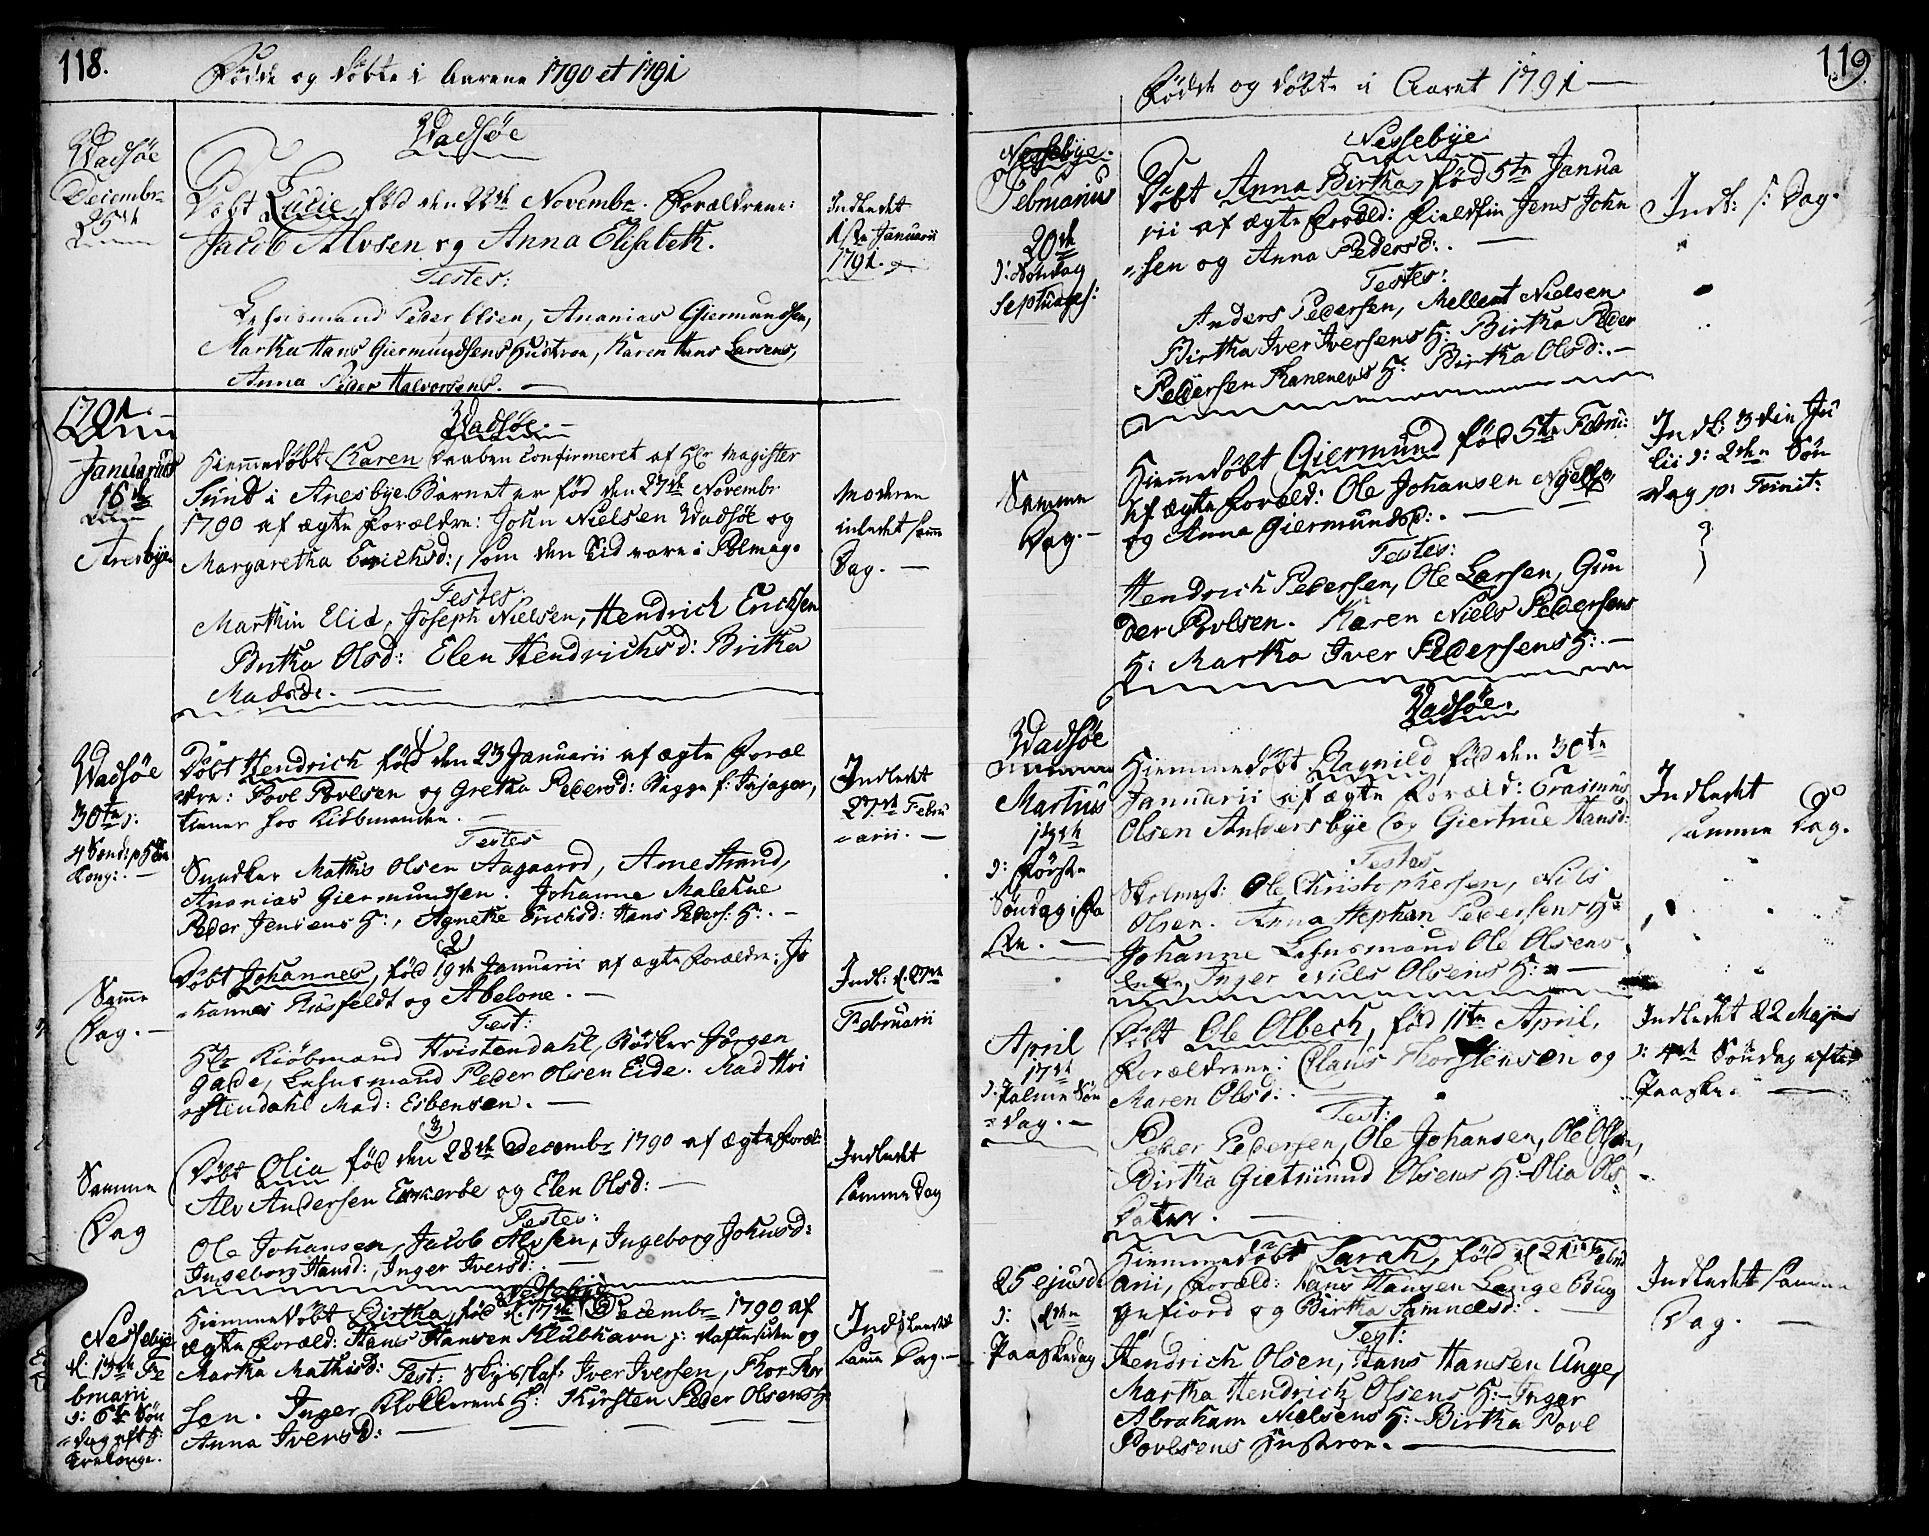 118.
Födde og döbte i Aarene 1790 et 1791
Wadsöe
Decembr
25de
Wadsöe
Döbt Lucie, föd den 22de Novembr. Forældrene:
Jacob Alvsen og Anna Elisabeth.
Testes:
Lehnsmand Peder Olsen, Ananias Giermundsen,
Martha Hans Giermundsens Hustroe, Karen Hans Larsens,
Anna Peder Halvorsens.
Indledet
1ste Januarii
1791.
1791.
Januarius
16de
Anesbÿe
Wadsöe.
Hiemmedöbt Karen Daaben Confirmeret af Hr Magister
Sund i Anesbye. Barnet er föd den 27de Novembr
1790 af ægte Forældre: John Nielsen Wadsöe og
Margaretha Erichsd:, som den Tid vare i Polmag.
Testes:
Marthin Elid, Joseph Nielsen, Hendrich Erichsen
Britha Olsd: Elen Hendrichsd: Britha
Madsdr.
Moderen
inledet samme
Dag.
Wadsöe
30te d:
4 Sönd: p H 3
Kong:
1
Döbt Hendrich föd den 23 Januarii af ægte Foræl
dre: Povl Povlsen og Grethe Pedersd: Bigge f: Injager,
tiener hos Kiöbmanden.
Testes
Snedker Mathis Olsen Aagaard, Arne Strand,
Ananias Giermundsen. Johanne Malene
Peder Jensens H:, Agnethe Erichsd: Hans Peders: H:.
Indledet
27de Febru
arii.
2
Samme
Dag.
Döbt Johannes, föd 19de Januarii af ægte Forældre: Jo
hannes Ruusfeldt og Abelone.
Test:
Hr Kiöbmand Hvistendahl, Bödker Jörgen
Gade, Lehnsmand Peder Olsen Eide. Mad Hvi
stendahl Mad: Esbensen.
Indl: d. 27de
Februarii
3
Samme
Dag
Döbt Olia föd den 28de Decembr 1790 af ægte Foræl:
Alv Andersen Eckerøe og Elen Olsd:
Testes:
Ole Johansen, Jacob Alvsen, Ingeborg Johnsd:
Ingeborg Hansd:, Inger Iversd:
Indledet
samme Dag
Nessebÿe
d. 13de Fe
bruarii
d: 6te Sön
dag eft H:
Trekonge.
Nessebÿe
Hiemmedöbt Birtha, föd d. 17de Decembr 1790 af
ægte Foræld: Hans Hansen Klubhavn p: Aftesiden og
Martha Mathisd: Test: Skydsskaf: Iver Iversen, Thor Thor
sen. Inger Klollerens H: Kirsten Peder Olsens H
Anna Iversd:
Indledet
samme Dag.
119.
Födde og döbte i Aaret 1791
Nessebÿe.
Februarius
20de
d: Söndag
Septuages:
Nessebÿe
Döbt Anna Birtha, föd 5te Janua
rii af ægte Foræld: Fieldfin Jens John
sen og Anna Pedersd:.
Testes:
Anders Pedersen, Mellent Nielsen
Birtha Iver Iversens H: Birtha Peder
Pedersen Kanenens H: Birtha Olsd:.
Indl: s: Dag.
Samme
Dag.
Hiemmedöbt Giermund föd 5te Febru:
af ægte Foræld: Ole Johansen
og Anna Giermundsd:.
Testes:
Hendrich Pedersen, Ole Larsen, Gun
der Povlsen. Karen Niels Pedersens
H: Martha Iver Pedersens H:.
Indl: 3die Ju
lii d: 2den Sön
dag p: Trinit:
Wadsöe
Martius
13de
d: Förste
Söndag i Fa
sten.
Wadsöe.
Hiemmedöbt Ragnild, föd den 30te
Januarii af ægte Foræld: Erasmus
Olsen Andersbÿe og Giertrue Hansd:
Testes
Skolmst: Ole Christophersen, Nils
Olsen. Anna Stephan Pedersens H:
Johanne Lehnsmand Ole Olsens
Enke, Inger Niels Olsens H:
Indledet
samme Dag.
April
17de
d: Palme Sön
dag.
Döbt Ole Olbech, föd 11te April.
Forældrene: Claus Thorstensen og
Maren Olsd:.
Test:
Peder Pedersen, Ole Johansen, Ole Olsen,
Birtha Gietmund Olsens H: Olia Ols
Dater.
Indledet 22 Maji
d: 4de Söndag efter
Paaske.
25 ejusd.
d: 2den
Paaskedag
Hiemmedöbt Sarah, föd d. 21de Febru
arii, Foræld: Hans Hansen Lange Bug
gefiord og Birtha Samuelsd:
Test:
Hendrich Olsen, Hans Hansen Unge,
Martha Hendrich Olsens H: Inger
Abraham Nielsens H: Birtha Povl
Povlsens Hustroe.
Indledet samme
Dag.